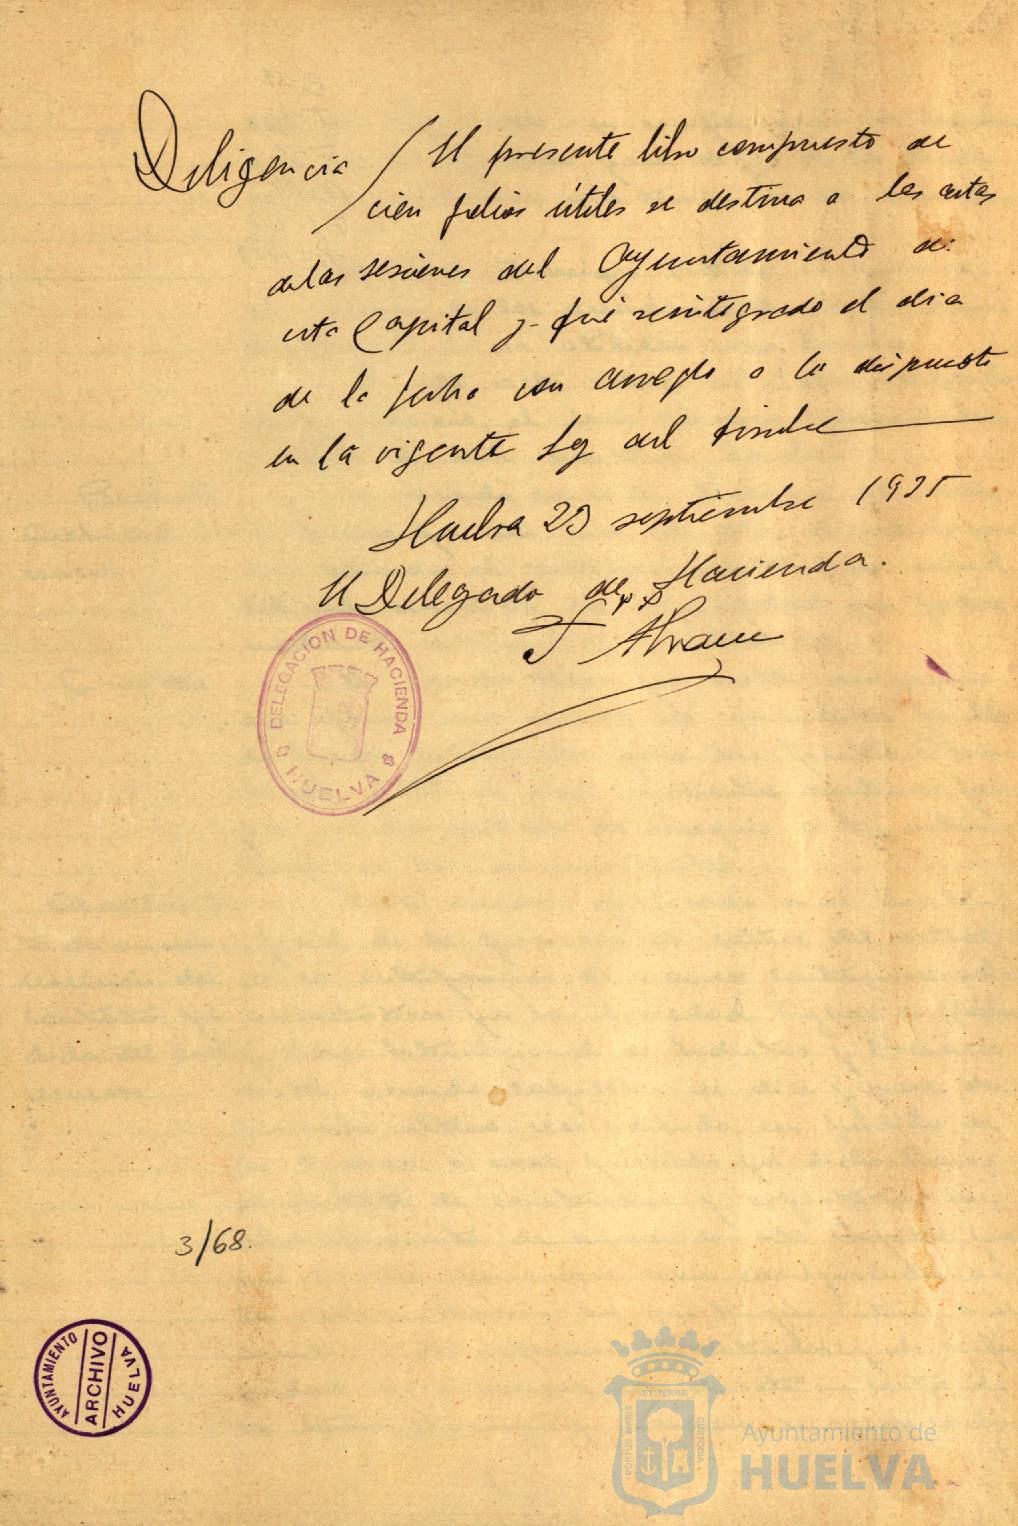 Diligencia / El presente libro compuesto de
cien folios útiles se destina a las actas
delas sesiones del Ayuntamiento de
esta Capital y fué reintegrado el dia
de la fecha con arreglo a lo dispuesto
en la vigente Ley del timbre
Huelva 23 septiembre 1935
El Delegado de Hacienda.
DELEGACION DE HACIENDA
HUELVA
3/68.
AYUNTAMIENTO
ARCHIVO
HUELVA
PORTUS MARIS
ET TERRE
CUSTODIA
Ayuntamiento de
HUELVA